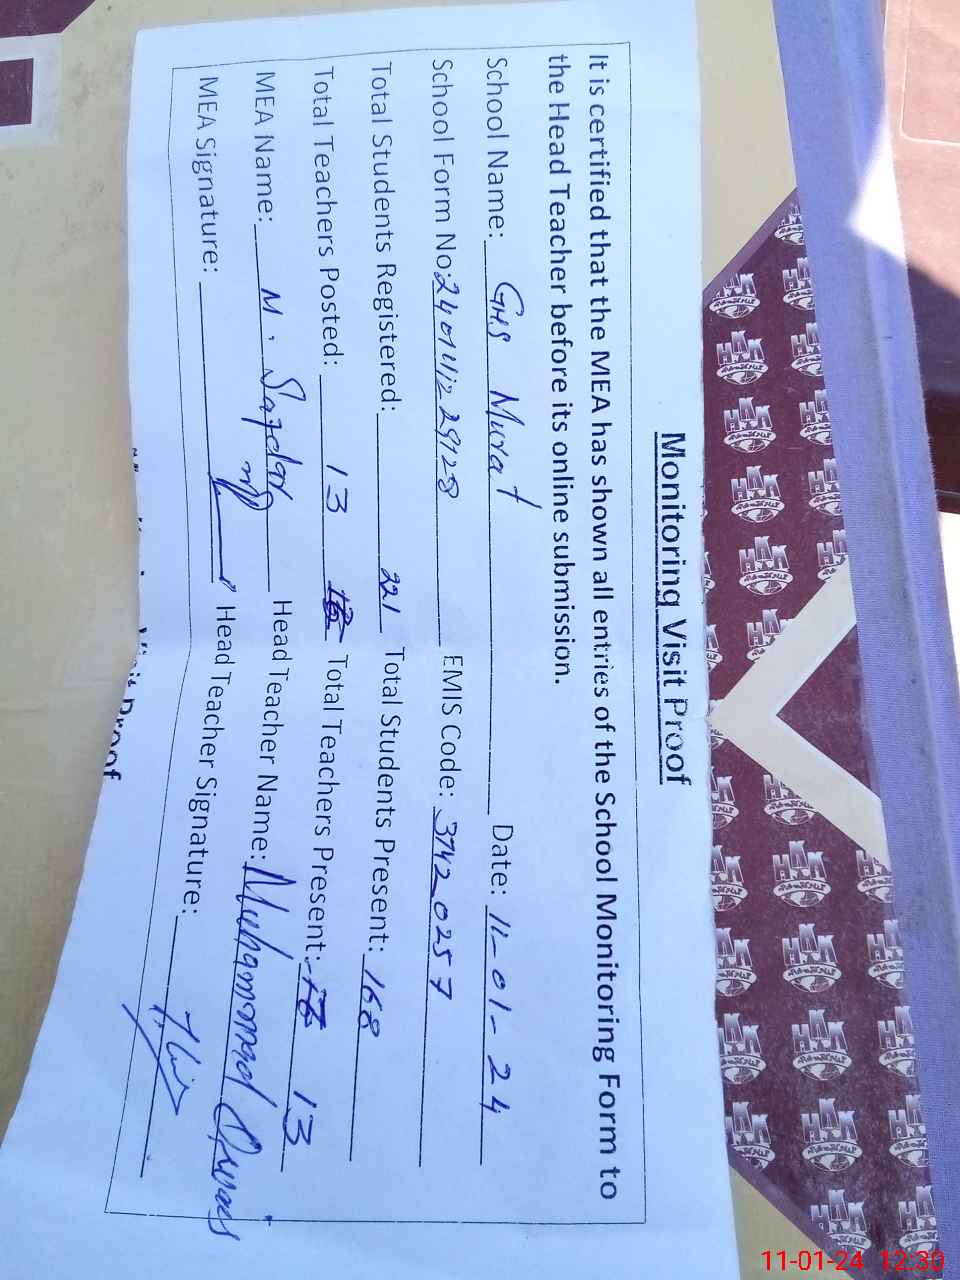 Monitoring Visit Proof
It is certified that the MEA has shown all entries of the School Monitoring Form to
the Head Teacher before its online submission.
School Name: GHS Murat Date: 11-01-24
School Form No: EMIS Code: 37420257
Total Students Registered: 221 Total Students Present: 168
Total Teachers Posted: 13 Total Teachers Present: 13
MEA Name: M. Safdar Head Teacher Name: Muhammad Owais
MEA Signature: Head Teacher Signature:
Visit Proof
HAK
11-01-24 12:30